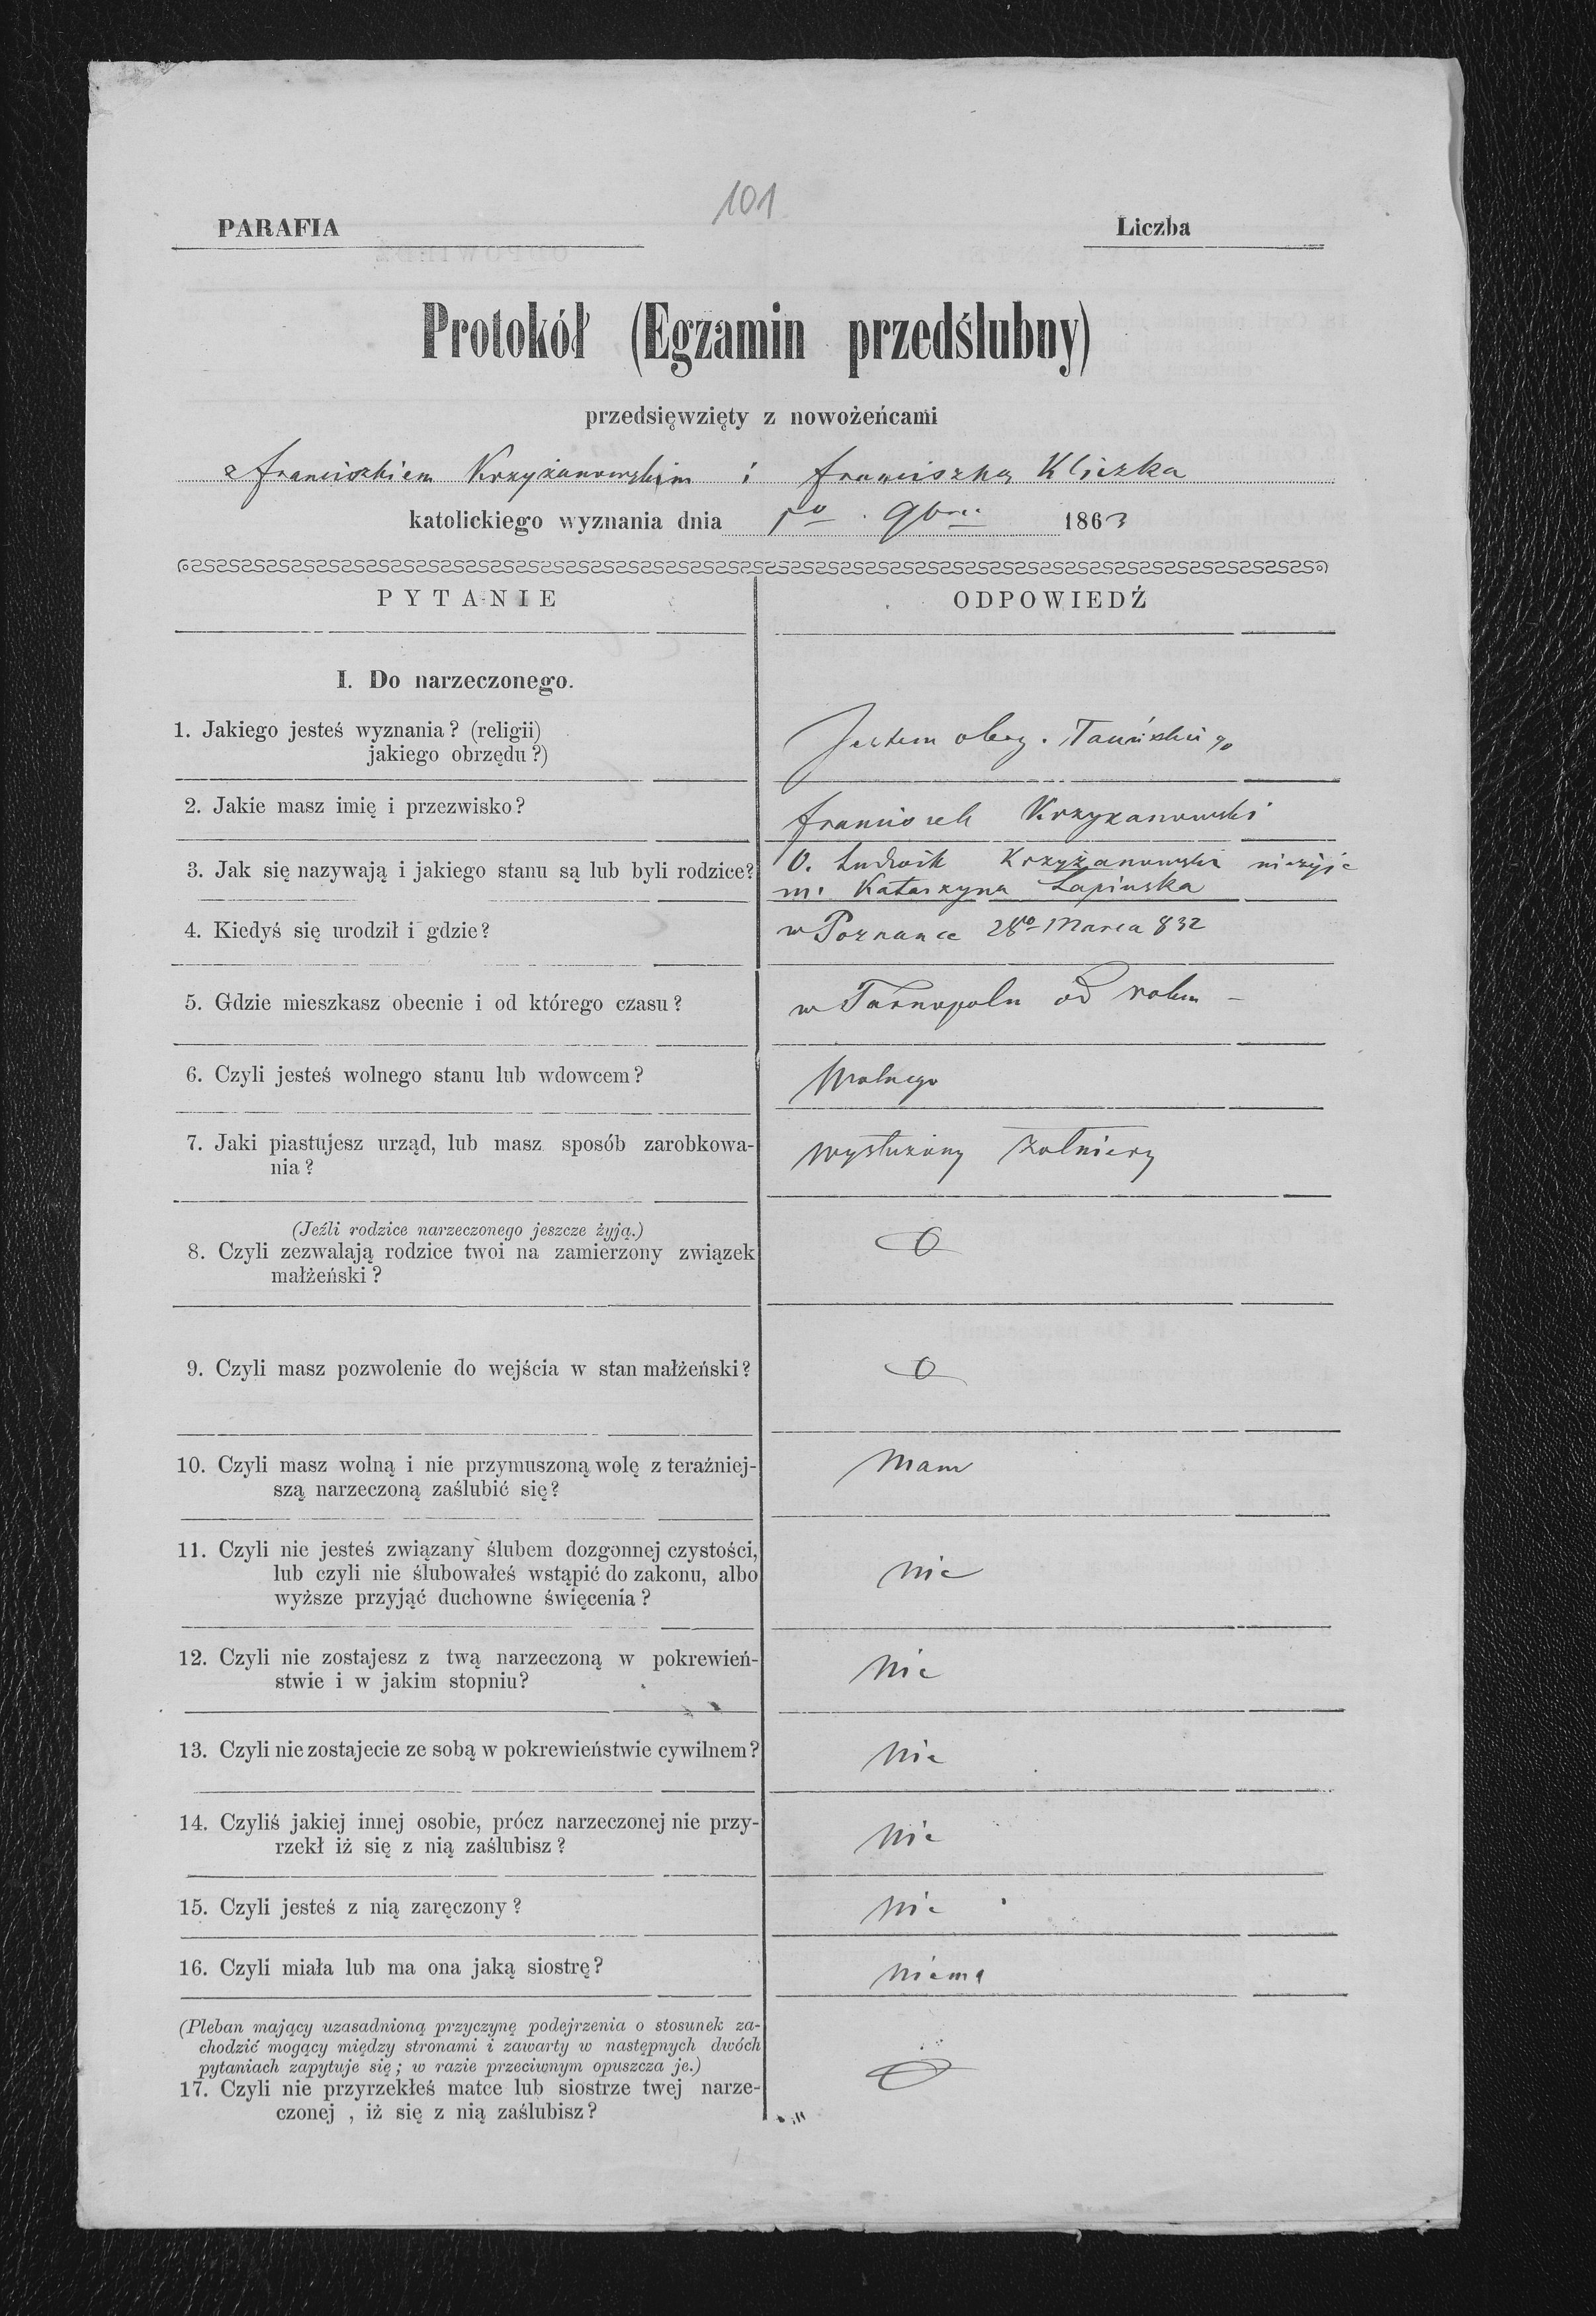 101
PARAFIA
Liczba
Protokół (Egzamin przedślubny)
przedsięwzięty z nowożeńcami
z Franciszkiem Krzyżanowskim i Franciszką Kliszka
katolickiego wyznania dnia 1º 9bris 1863
PYTANIE
ODPOWIEDŹ
I. Do narzeczonego.
1. Jakiego jesteś wyznania? (religii)
jakiego obrzędu?)
Jestem obrz.
2. Jakie masz imię i przezwisko?
Franciszek Krzyżanowski
3. Jak się nazywają i jakiego stanu są lub byli rodzice?
O. Ludwik Krzyżanowski nieżyje
m. Katarzyna Łapińska
4. Kiedyś się urodził i gdzie?
w Poznance 28º Marca 832
5. Gdzie mieszkasz obecnie i od którego czasu?
w Tarnopolu od roku –
6. Czyli jesteś wolnego stanu lub wdowcem?
Wolnego
7. Jaki piastujesz urząd, lub masz sposób zarobkowa-
nia?
wysłużony żołnierz
(Jeźli rodzice narzeczonego jeszcze żyją.)
8. Czyli zezwalają rodzice twoi na zamierzony związek
małżeński?
O
9. Czyli masz pozwolenie do wejścia w stan małżeński?
O
10. Czyli masz wolną i nie przymuszoną wolę z teraźniej-
szą narzeczoną zaślubić się?
Mam
11. Czyli nie jesteś związany ślubem dozgonnej czystości,
lub czyli nie ślubowałeś wstąpić do zakonu, albo
wyższe przyjąć duchowne święcenia?
nie
12. Czyli nie zostajesz z twą narzeczoną w pokrewień-
stwie i w jakim stopniu?
Nie
13. Czyli nie zostajecie ze sobą w pokrewieństwie cywilnem?
Nie
14. Czyliś jakiej innej osobie, prócz narzeczonej nie przy-
rzekł iż się z nią zaślubisz?
Nie
15. Czyli jesteś z nią zaręczony?
Nie
16. Czyli miała lub ma ona jaką siostrę?
Niema
(Pleban mający uzasadnioną przyczynę podejrzenia o stosunek za-
chodzić mogący między stronami i zawarty w następnych dwóch
pytaniach zapytuje się; w razie przeciwnym opuszcza je.)
17. Czyli nie przyrzekłeś matce lub siostrze twej narze-
czonej, iż się z nią zaślubisz?
O